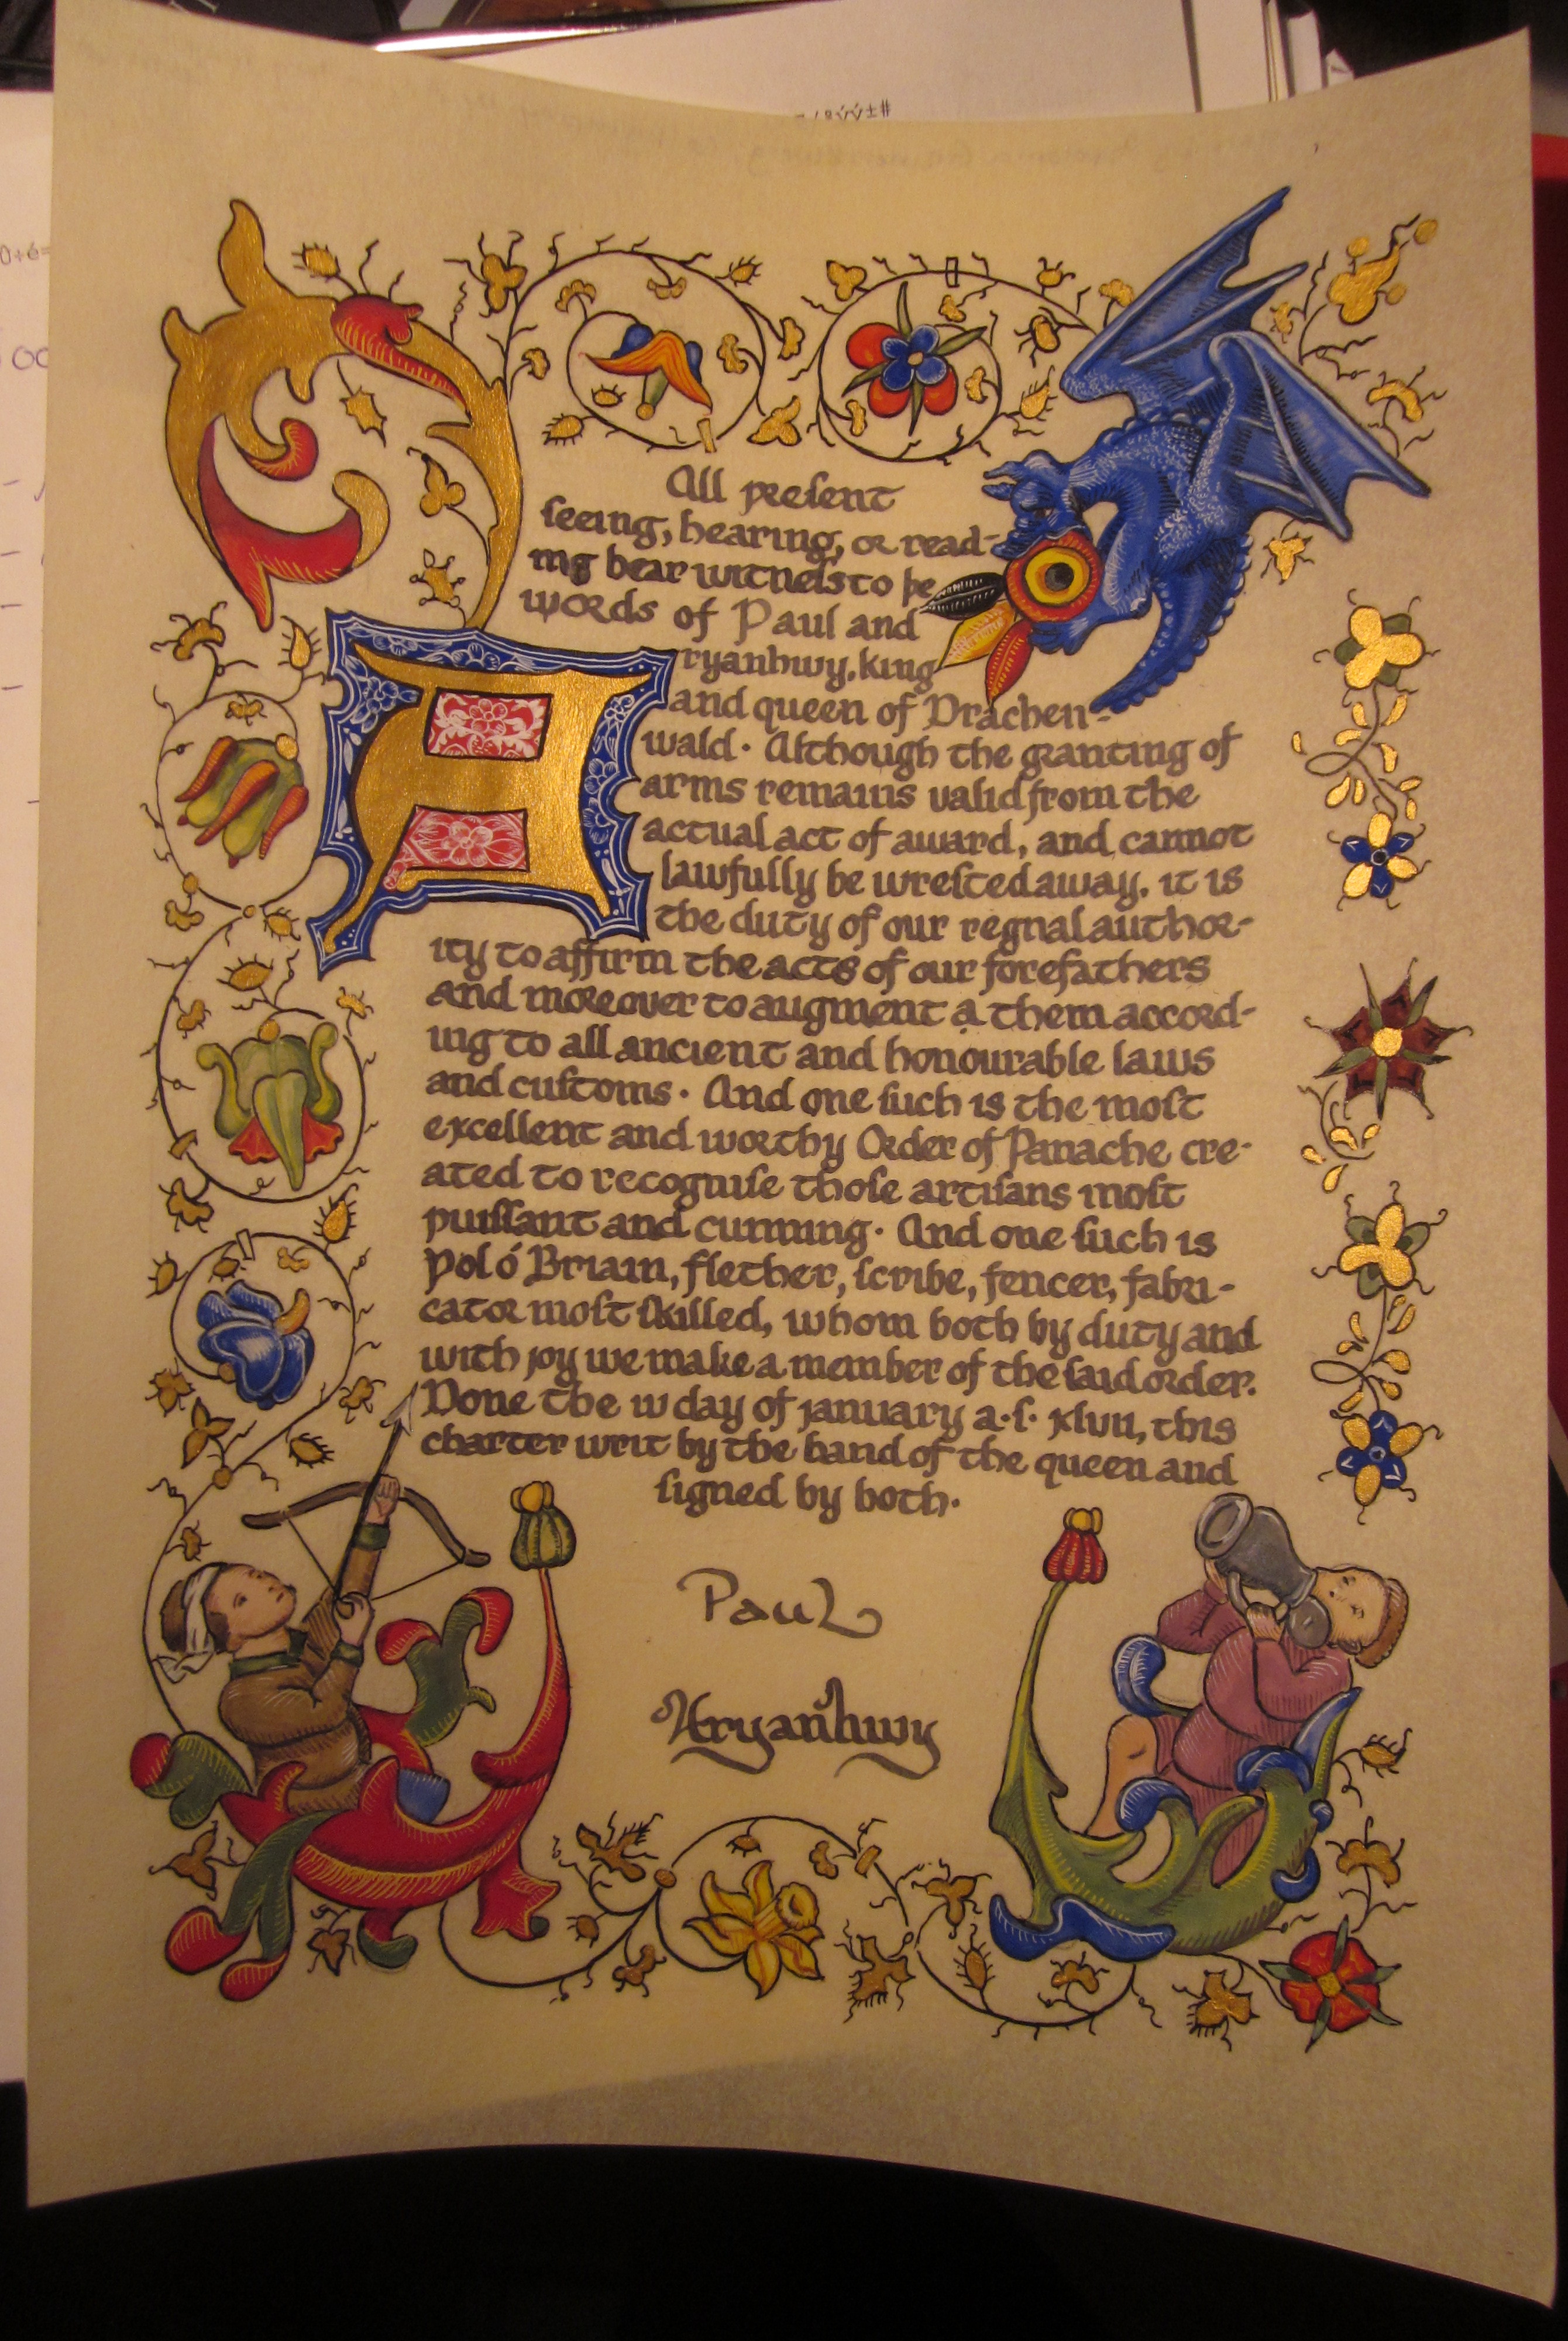 All present
seeing, hearing, or read-
ing bear witness to þe
words of Paul and
Aryanhwy, king
and queen of Drachen-
wald. Although the granting of
arms remains valid from the
actual act of award, and cannot
lawfully be wrested away, it is
the duty of our regnal author-
ity to affirm the acts of our forefathers
and moreover to augment a them accord-
ing to all ancient and honourable laws
and customs. And one such is the most
excellent and worthy Order of Panache cre-
ated to recognise those artisans most
puissant and cunning. And one such is
Pol ó Briain, flether, scribe, fencer, fabri-
cator most skilled, whom both by duty and
with joy we make a member of the said order.
Done the iv day of january a.s. xlvii, this
charter writ by the hand of the queen and
signed by both.
Paul
Aryanhwy